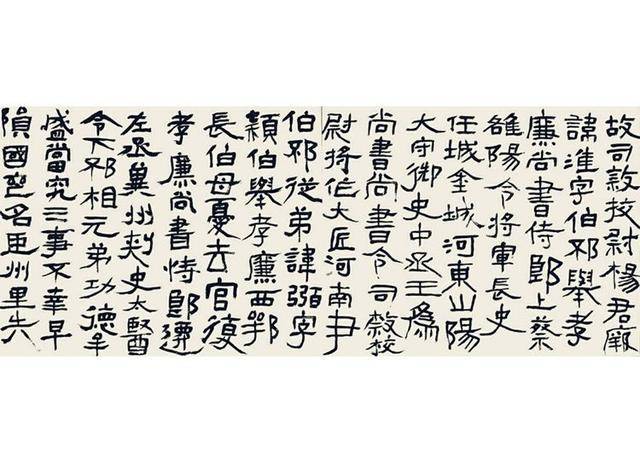 故司隸校尉楊君厥
諱淮字伯邳舉孝
廉尚書侍郎上蔡
雒陽令將軍長史
任城金城河東山陽
大守御史中丞王爲
尚書尚書令司隸校
尉將作大匠河南尹
伯邳從弟諱弼字
潁伯舉孝廉西鄂
長伯母憂去官復
孝廉尚書侍郎遷
左丞冀州刺史太醫
令下邳相元弟功德牟
盛當究三事不幸早
隕國喪名臣州里失